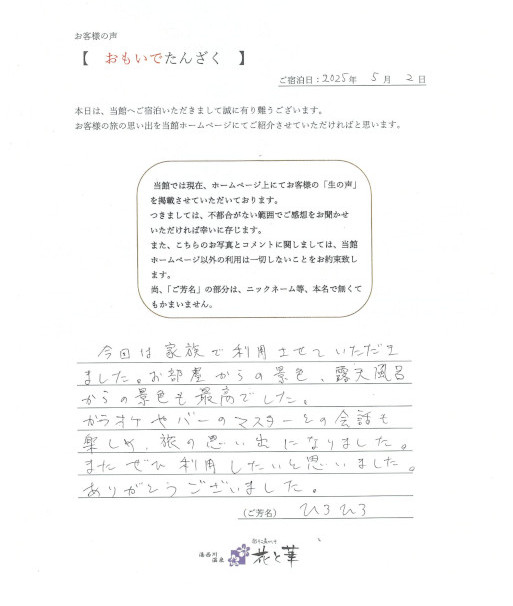 お客様の声
【 おもいでたんざく 】
ご宿泊日：2025年 5月 2日
本日は、当館へご宿泊いただきまして誠に有り難うございます。
お客様の旅の思い出を当館ホームページにてご紹介させていただければと思います。
当館では現在、ホームページ上にてお客様の「生の声」
を掲載させていただいております。
つきましては、不都合がない範囲でご感想をお聞かせ
いただければ幸いに存じます。
また、こちらのお写真とコメントに関しましては、当館
ホームページ以外の利用は一切しないことをお約束致し
ます。
尚、「ご芳名」の部分は、ニックネーム等、本名で無くて
もかまいません。
今回は家族で利用させていただき
ました。お部屋からの景色、露天風呂
からの景色も最高でした。
カラオケやバーのマスターとの会話も
楽しめ、旅の思い出になりました。
またぜひ利用したいと思いました。
ありがとうございました。
(ご芳名) ひろひろ
湯西川
温泉
花と華